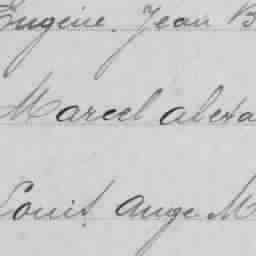 Eugène Jean B
Marcel alexa
Louis Ange M